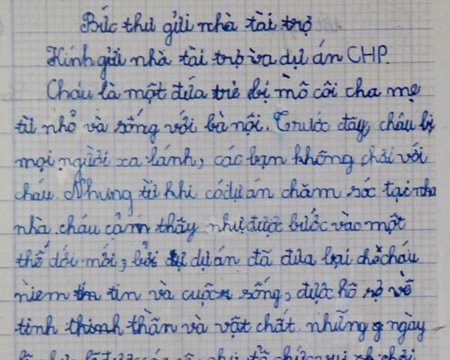 Bức thư gửi nhà tài trợ
Kính gửi nhà tài trợ và dự án CHP.
Cháu là một đứa trẻ bị mồ côi cha mẹ
từ nhỏ và sống với bà nội. Trước đây, cháu bị
mọi người xa lánh, các bạn không chơi với
cháu. Nhưng từ khi có dự án chăm sóc tại nhà
nhà cháu cảm thấy như được bước vào một
thế dới mới, bởi dự án đã đưa lại cho cháu
niềm tin và cuộc sống, được hỗ sợ về
tinh thần và vật chất. những ngày